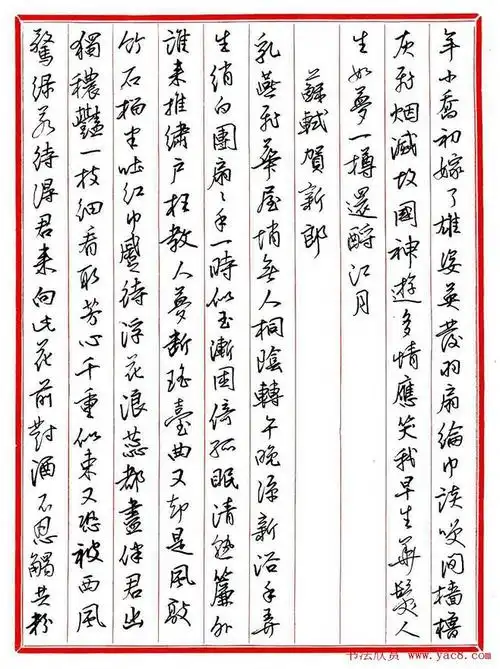 年小喬初嫁了雄姿英發羽扇綸巾談笑间檣櫓
灰飛烟滅故國神遊多情應笑我早生華髮人
生如夢一樽還酹江月
蘇軾賀新郎
乳燕飛華屋悄無人桐陰轉午晚凉新浴手弄
生綃白團扇〻手一時似玉漸困倚孤眠清熟簾外
誰来推繡户枉教人夢斷瑤臺曲又却是風敲
竹石榴半吐红巾蹙待浮花浪蕊都盡伴君幽
獨穠豔一枝細看取芳心千重似束又恐被西風
驚绿若待得君来向此花前對酒不忍觸共粉
书法欣赏 www.yac8.com